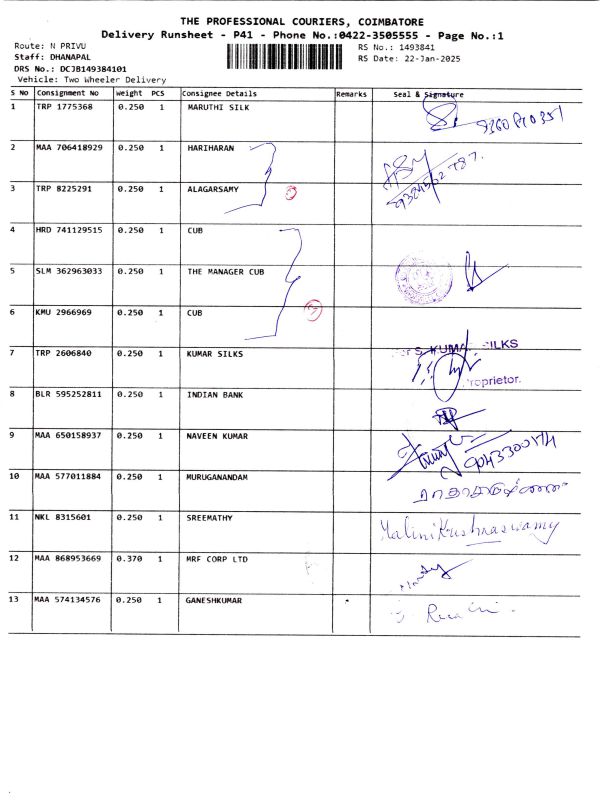 THE PROFESSIONAL COURIERS, COIMBATORE
Delivery Runsheet - P41 - Phone No.:0422-3505555 - Page No.:1
Route: N PRIVU RS No.: 1493841
Staff: DHANAPAL RS Date: 22-Jan-2025
DRS No.: DCJB149384101
Vehicle: Two Wheeler Delivery
S No Consignment No Weight PCS Consignee Details Remarks Seal & Signature
1 TRP 1775368 0.250 1 MARUTHI SILK
2 MAA 706418929 0.250 1 HARIHARAN
3 TRP 8225291 0.250 1 ALAGARSAMY
4 HRD 741129515 0.250 1 CUB
5 SLM 362963033 0.250 1 THE MANAGER CUB
6 KMU 2966969 0.250 1 CUB
7 TRP 2606840 0.250 1 KUMAR SILKS SILKS
roprietor.
8 BLR 595252811 0.250 1 INDIAN BANK
9 MAA 650158937 0.250 1 NAVEEN KUMAR
10 MAA 577011884 0.250 1 MURUGANANDAM
11 NKL 8315601 0.250 1 SREEMATHY Malini Krishnaswamy
12 MAA 868953669 0.370 1 MRF CORP LTD
13 MAA 574134576 0.250 1 GANESHKUMAR